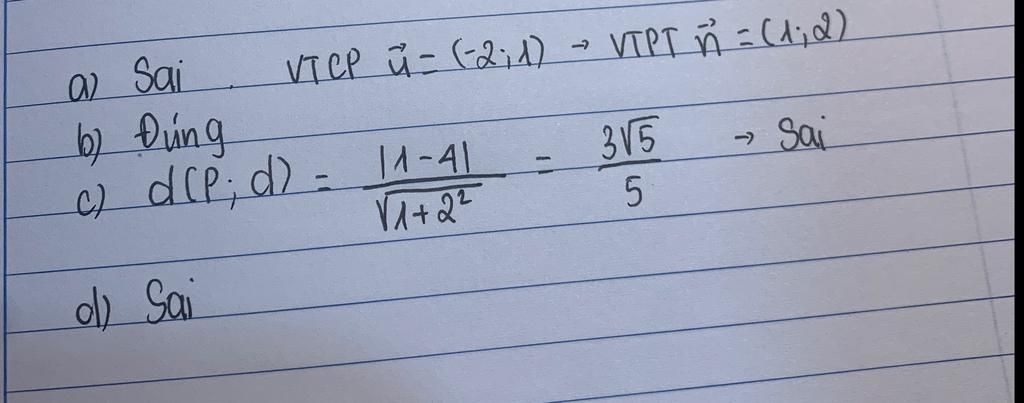 a) Sai. VTCP u⃗ = (-2;1) → VTPT n⃗ = (1;2)
b) Đúng
c) d(P;d) = |1-4| / √(1+2²) = 3√5 / 5 → Sai
d) Sai